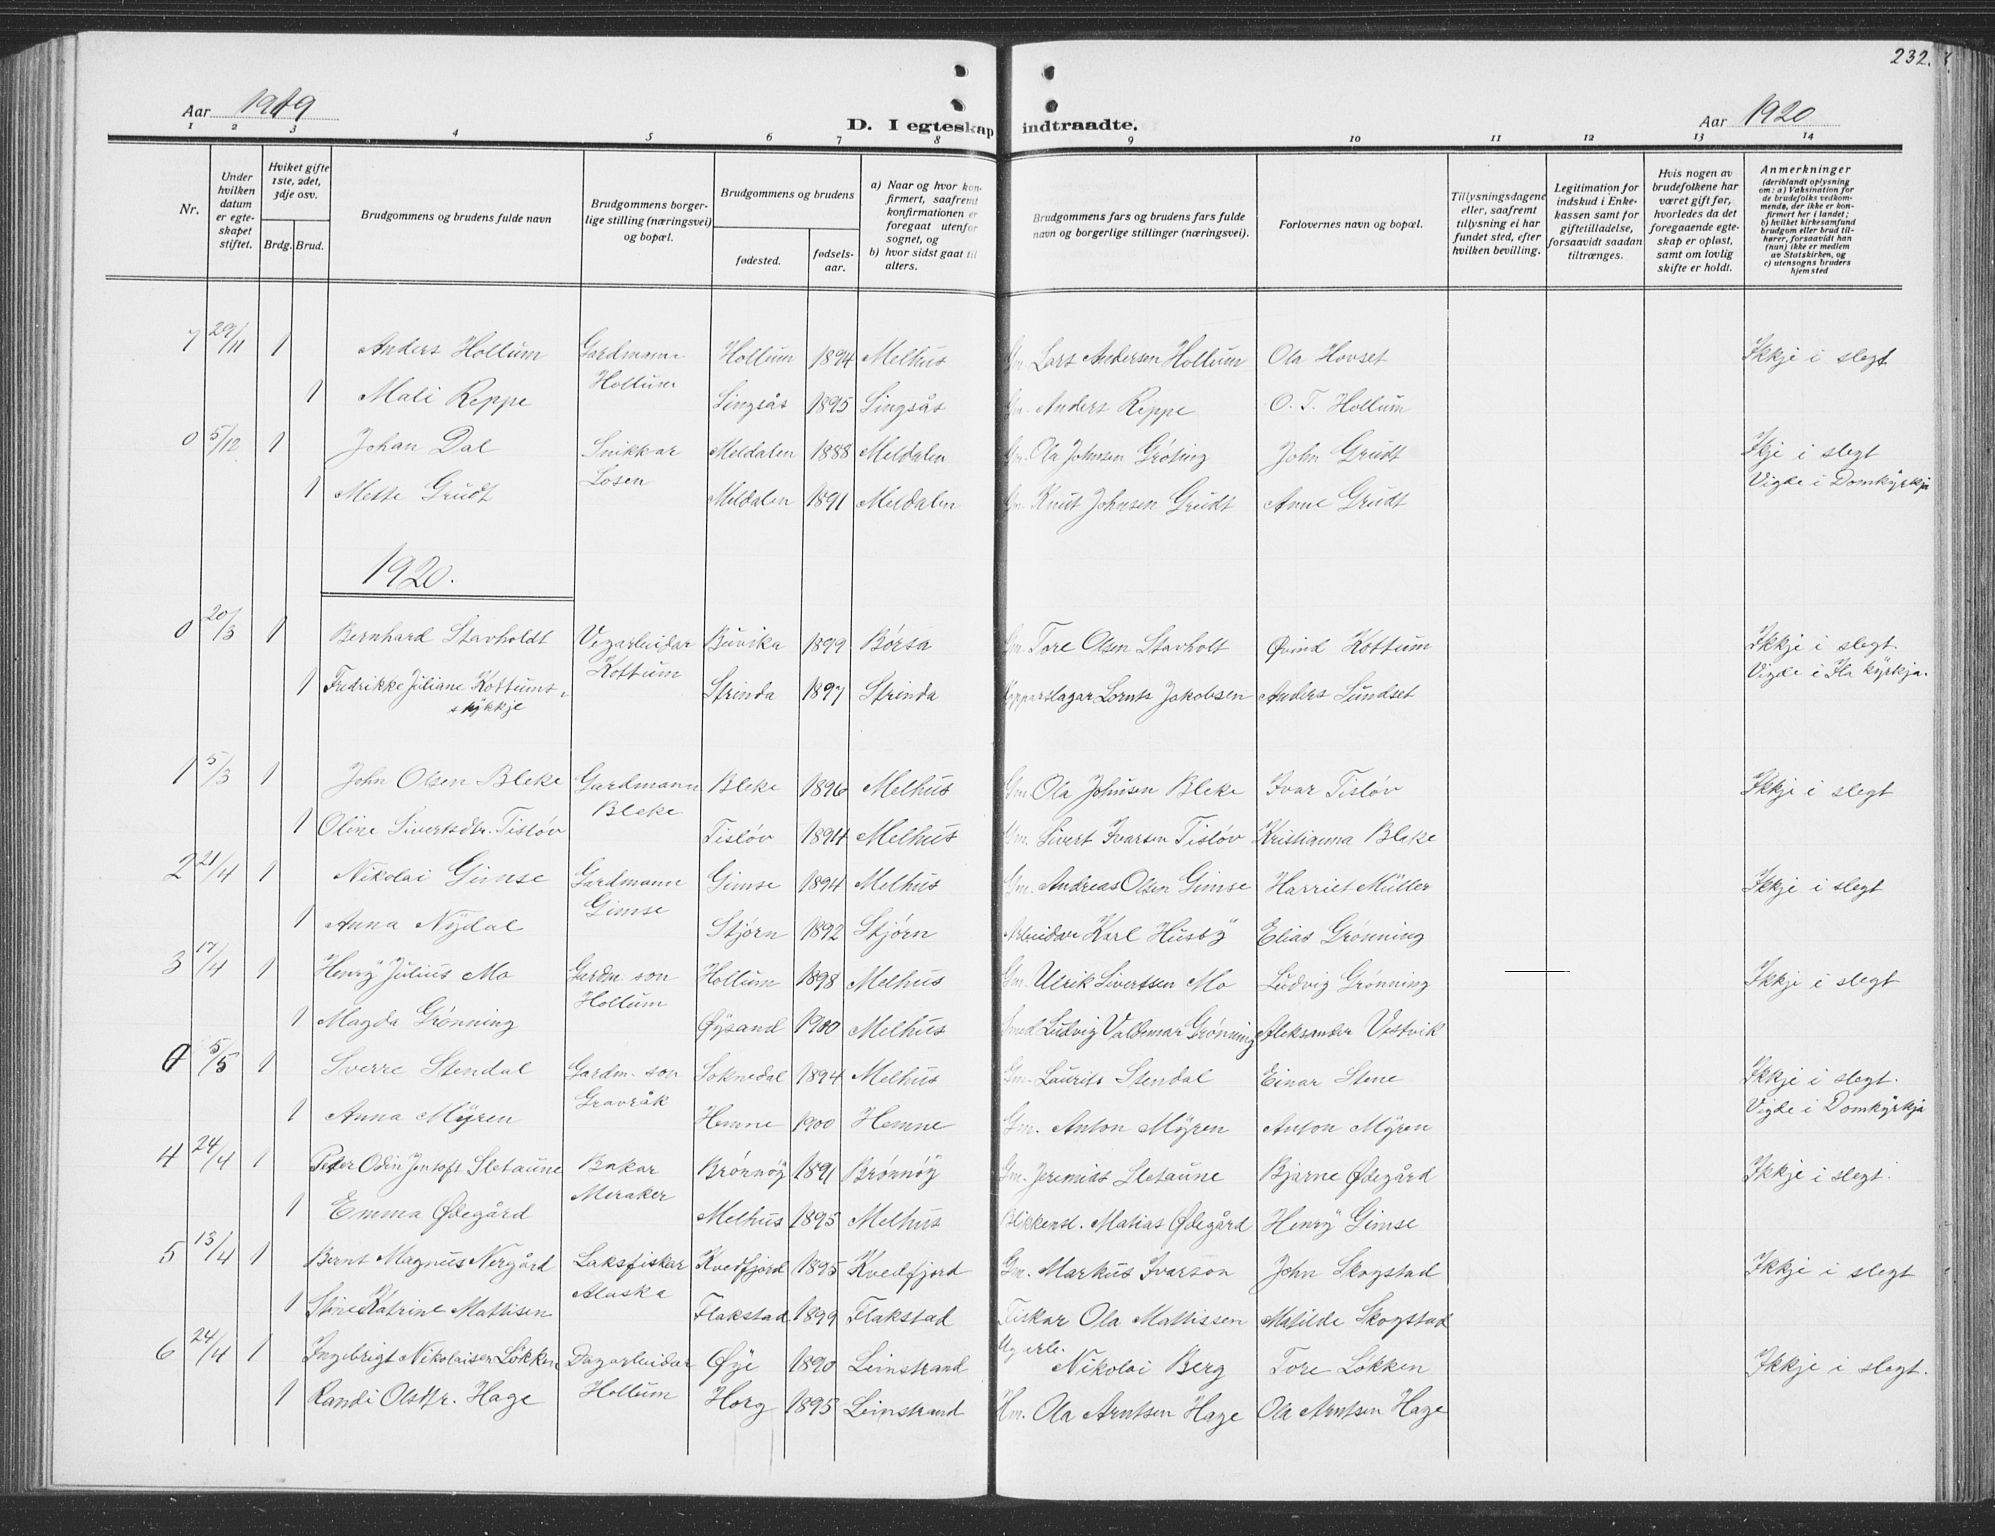 232.
Aar 1919
D. I egteskap indtraadte.
Aar 1920
1 2 3 4 5 6 7 8 9 10 11 12 13 14
Nr.
Under hvilken datum er egteskapet stiftet.
Hviket gifte 1ste, 2det, 3dje osv.
Brdg. Brud.
Brudgommens og brudens fulde navn
Brudgommens borgerlige stilling (næringsvei) og bopæl.
Brudgommens og brudens
fødested.
fødselsaar.
a) Naar og hvor konfirmert, saafremt konfirmationen er foregaat utenfor sognet, og
b) hvor sidst gaat til alters.
Brudgommens fars og brudens fars fulde navn og borgerlige stillinger (næringsvei).
Forlovernes navn og bopæl.
Tillysningsdagene eller, saafremt tillysning ei har fundet sted, efter hvilken bevilling.
Legitimation for indskud i Enkekassen samt for giftetilladelse, forsaavidt saadan tiltrænges.
Hvis nogen av brudefolkene har været gift før, hvorledes da det foregaaende egteskap er opløst, samt om lovlig skifte er holdt.
Anmerkninger
(deriblandt oplysning om: a) Vaksination for de brudefolks vedkommende, der ikke er konfirmert her i landet; b) hvilket kirkesamfund brudgom eller brud tilhører, forsaavidt han (hun) ikke er medlem av Statskirken, og c) utensogns bruders hjemsted
7 29/11 1 Anders Hollum Gardmann Hollum 1894 Melhus Gm. Lars Andersen Hollum Ola Hovset Ikkje i slegt
1 Mali Reppe Hollum Singsås 1895 Singsås Gm. Anders Reppe O. T. Hollum
0 5/12 1 Johan Dal Snikkar Meldalen 1888 Meldalen Gm. Ola Johnsen Grøting John Grudt Ikje i slegt
1 Mette Grudt Losen Meldalen 1891 Meldalen Gm. Knut Johnsen Grudt Anne Grudt Vigde i Domkyrkja
1920.
0 20/3 1 Bernhard Stavholdt Vegarbeidar Buvika 1899 Børsa Gm. Tore Olsen Stavholt Øvind Kottum Ikkje i slegt.
1 Fredrikke Juliane Kottumsstykkje Kottum Strinda 1897 Strinda Kopparslagar Lornts Jakobsen Anders Sundset Vigde i Ila kyrkja.
1 5/3 1 John Olsen Bleke Gardmann Bleke 1896 Melhus Gm. Ola Johnsen Bleke Ivar Tisløv Ikkje i slegt
1 Oline Sivertsdtr. Tisløv Bleke Tisløv 1894 Melhus Gm. Sivert Ivarsen Tisløv Kristianna Bleke
2 21/4 1 Nikolai Gimse Gardmann Gimse 1894 Melhus Gm. Andreas Olsen Gimse Harriet Müller Ikkje i slegt
1 Anna Nydal Gimse Stjørn 1892 Stjørn Arbeidar Karl Husby Elias Grønning
3 17/4 1 Henry Julius Mo Gardm. son Hollum 1898 Melhus Gm. Ulrik Sivertsen Mo Ludvig Grønning Ikkje i slegt
1 Magda Grønning Hollum Øysand 1900 Melhus Smed Ludvig Valdemar Grønning Aleksander Vestvik
0 5/5 1 Sverre Stendal Gardm. son Soknedal 1894 Melhus Gm. Laurits Stendal Einar Stene Ikkje i slegt.
1 Anna Myren Gravråk Hemne 1900 Hemne Gm. Anton Myren Anton Myren Vigde i Domkyrkja
4 24/4 1 Peter Odin Jentoft Sletaune Bakar Brønnøy 1891 Brønnøy Gm. Jeremias Sletaune Bjarne Ødegård Ikkje i slegt.
1 Emma Ødegård Meraker Melhus 1895 Melhus Blikkensl. Matias Ødegård Henry Gimse
5 13/4 1 Bernt Magnus Nergård Laksfiskar Kvedfjord 1895 Kvedfjord Gm. Markus Ivarson John Skogstad Ikkje i slegt
1 Stine Katrine Mattisen Alaska Flakstad 1899 Flakstad Fiskar Ola Mattissen Matilde Skogstad
6 24/4 1 Ingebrigt Nikolaisen Løkken Dagarbeidar Øye 1890 Leinstrand Nikolai Berg Tore Løkken Ikkje i slegt.
1 Randi Olsdtr. Hage Hollum Horg 1895 Leinstrand Hm. Ola Arntsen Hage Ola Arntsen Hage